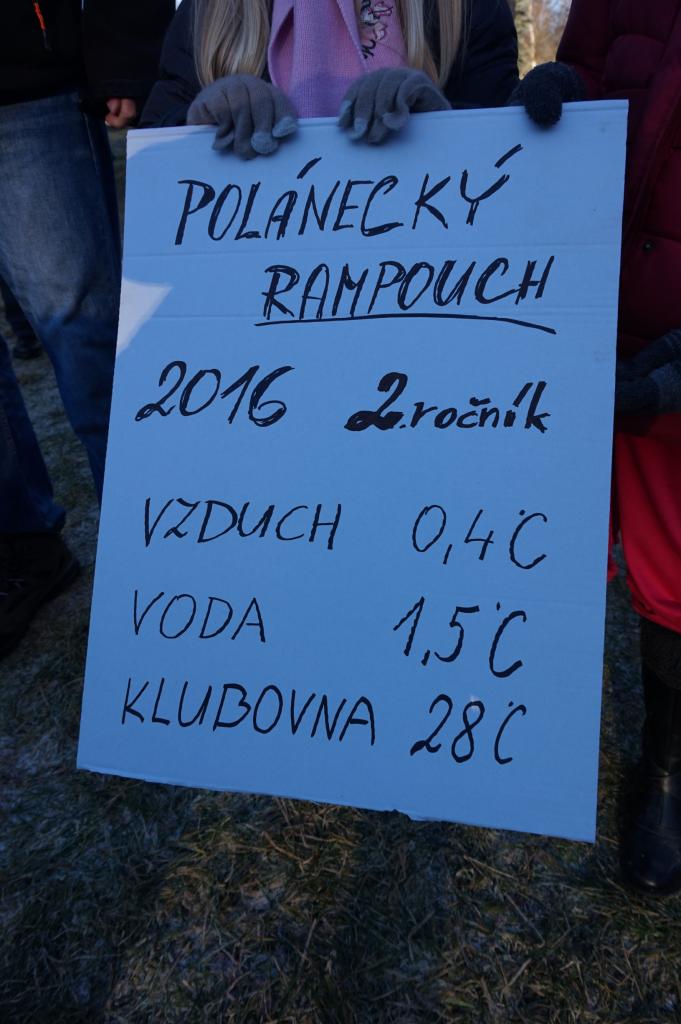 POLÁNECKÝ
RAMPOUCH
2016 2.ročník
VZDUCH 0,4°C
VODA 1,5°C
KLUBOVNA 28°C